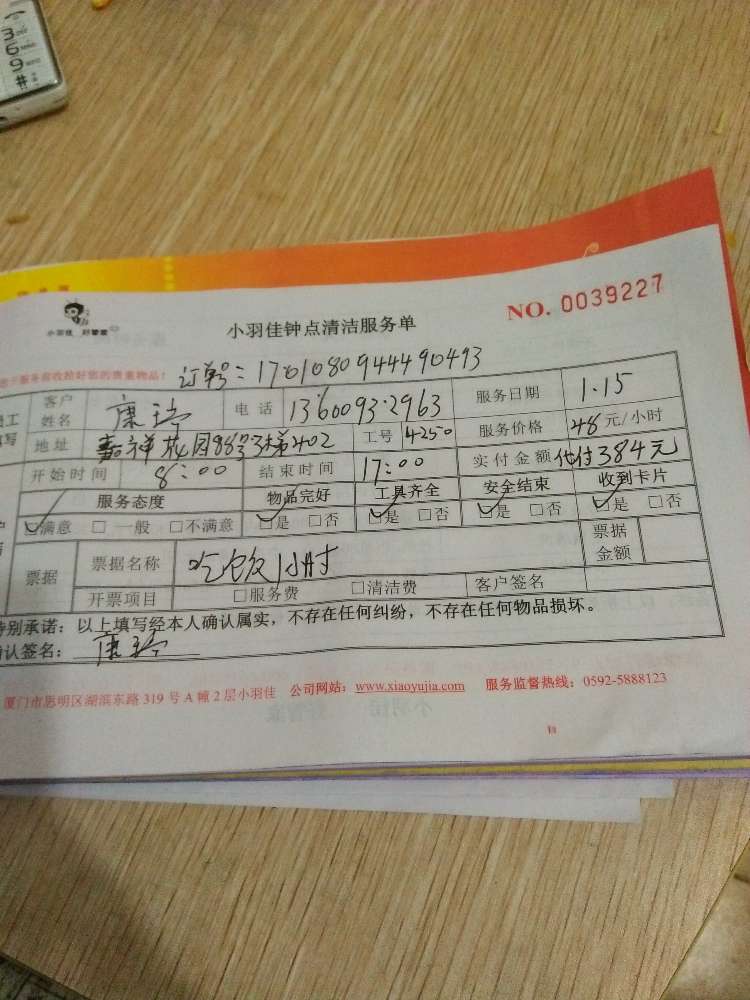 3
6
9
#
小羽佳 好管家
小羽佳钟点清洁服务单
NO. 0039227
服务前收拾好您的贵重物品!
订单号:1701080944490493
客户姓名 康 电话 13600932963 服务日期 1.15
地址 嘉祥花园88号3梯402 工号 4250 服务价格 48元/小时
开始时间 8:00 结束时间 17:00 实付金额 代付384元
服务态度 物品完好 工具齐全 安全结束 收到卡片
☑满意 □一般 □不满意 ☑是 □否 ☑是 □否 ☑是 □否 ☑是 □否
票据 票据名称 吃饭1小时 票据金额
开票项目 □服务费 □清洁费 客户签名
特别承诺:以上填写经本人确认属实,不存在任何纠纷,不存在任何物品损坏。
确认签名:康
厦门市思明区湖滨东路319号A幢2层小羽佳 公司网站:www.xiaoyujia.com 服务监督热线:0592-5888123